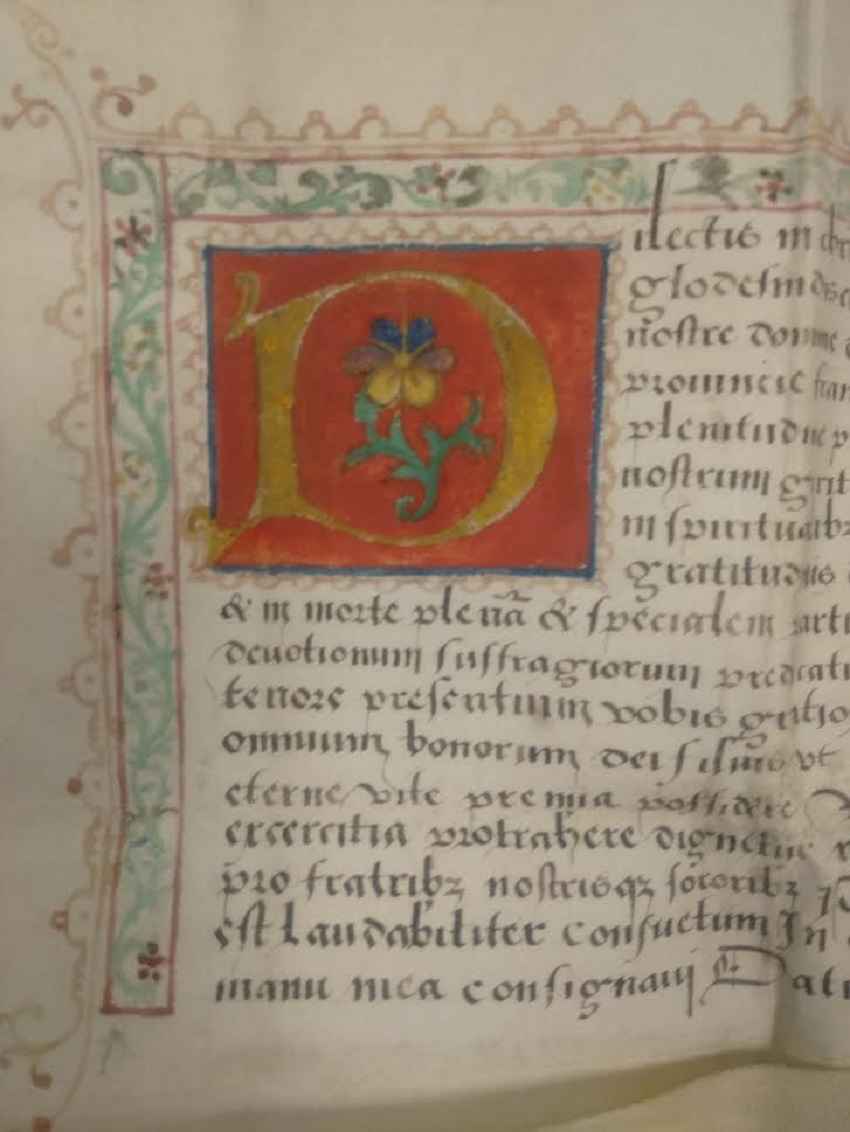 D
ilectis in chr
glodesindis
nostre domine
provincie fran
plenitudine p
nostrum grat
in spiritualibz
gratitudinis
& in morte plenã & specialem parti
devotionum suffragiorum predicati
tenore presentium vobis gratio
omnium bonorum dei filius vt
eterne vite premia possidere
exercitia protrahere dignetur
pro fratribz nostrisqz sororibz
est laudabiliter consuetum In
manu mea consignavi Dat